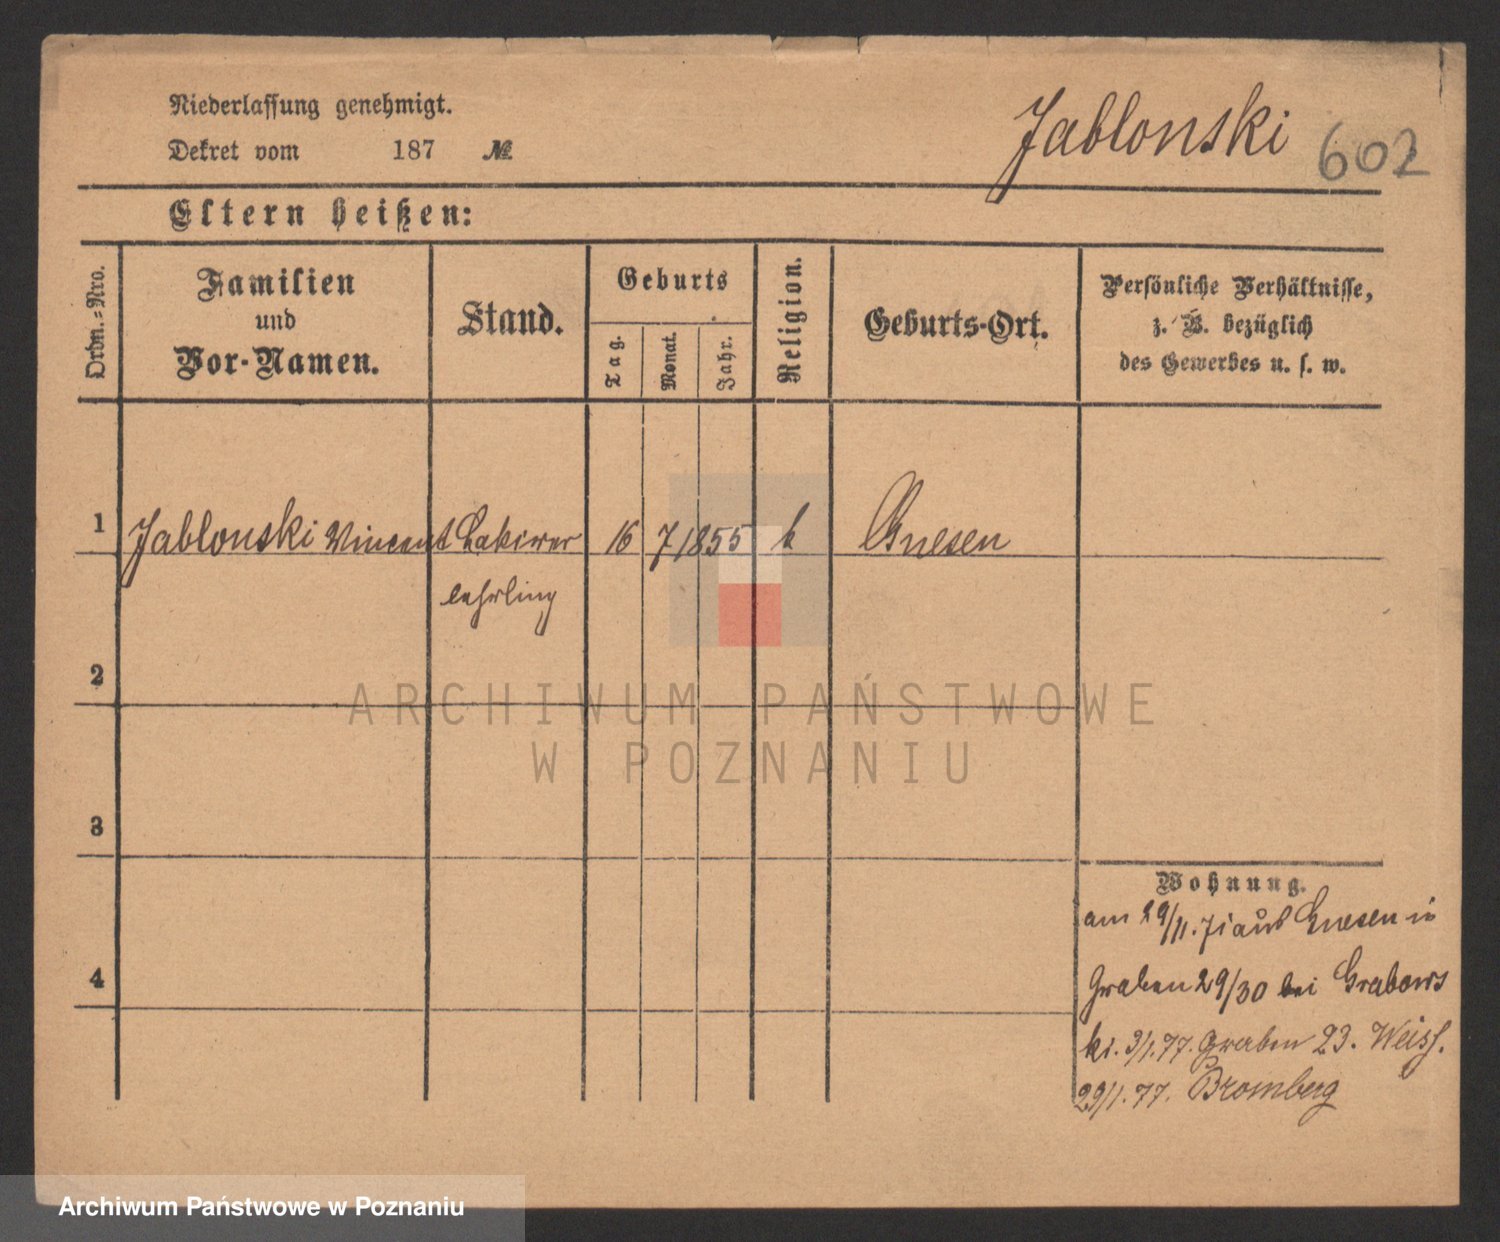 Niederlassung genehmigt.
Jablonski 602
Dekret vom 187 №
Eltern heißen:
Ordn.-Nro.
Familien
und
Vor-Namen.
Stand.
Geburts
Tag.
Monat.
Jahr.
Religion.
Geburts-Ort.
Persönliche Verhältnisse,
z. B. bezüglich
des Gewerbes u. s. w.
1 Jablonski Vincent Lakirer 16 7 1855 k Gnesen
lehrling
2
3
4
Wohnung.
am 29/11. 71 aus Gnesen in
Graben 29/30 bei Grabows
ki. 3/1.77. Graben 23. Weiss.
29/1.77. Bromberg
ARCHIWUM PAŃSTWOWE
W POZNANIU
Archiwum Państwowe w Poznaniu